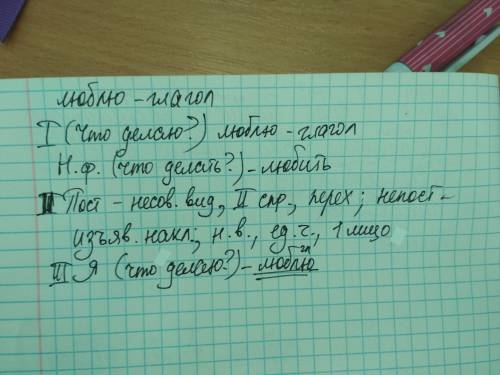 люблю - глагол
I (что делаю?) люблю - глагол
Н.ф. (что делать?) - любить
II Пост - несов. вид, II спр., перех; непост -
изъяв. накл; н.в., ед.ч., 1 лицо
III Я (что делаю?) - люблю
гл